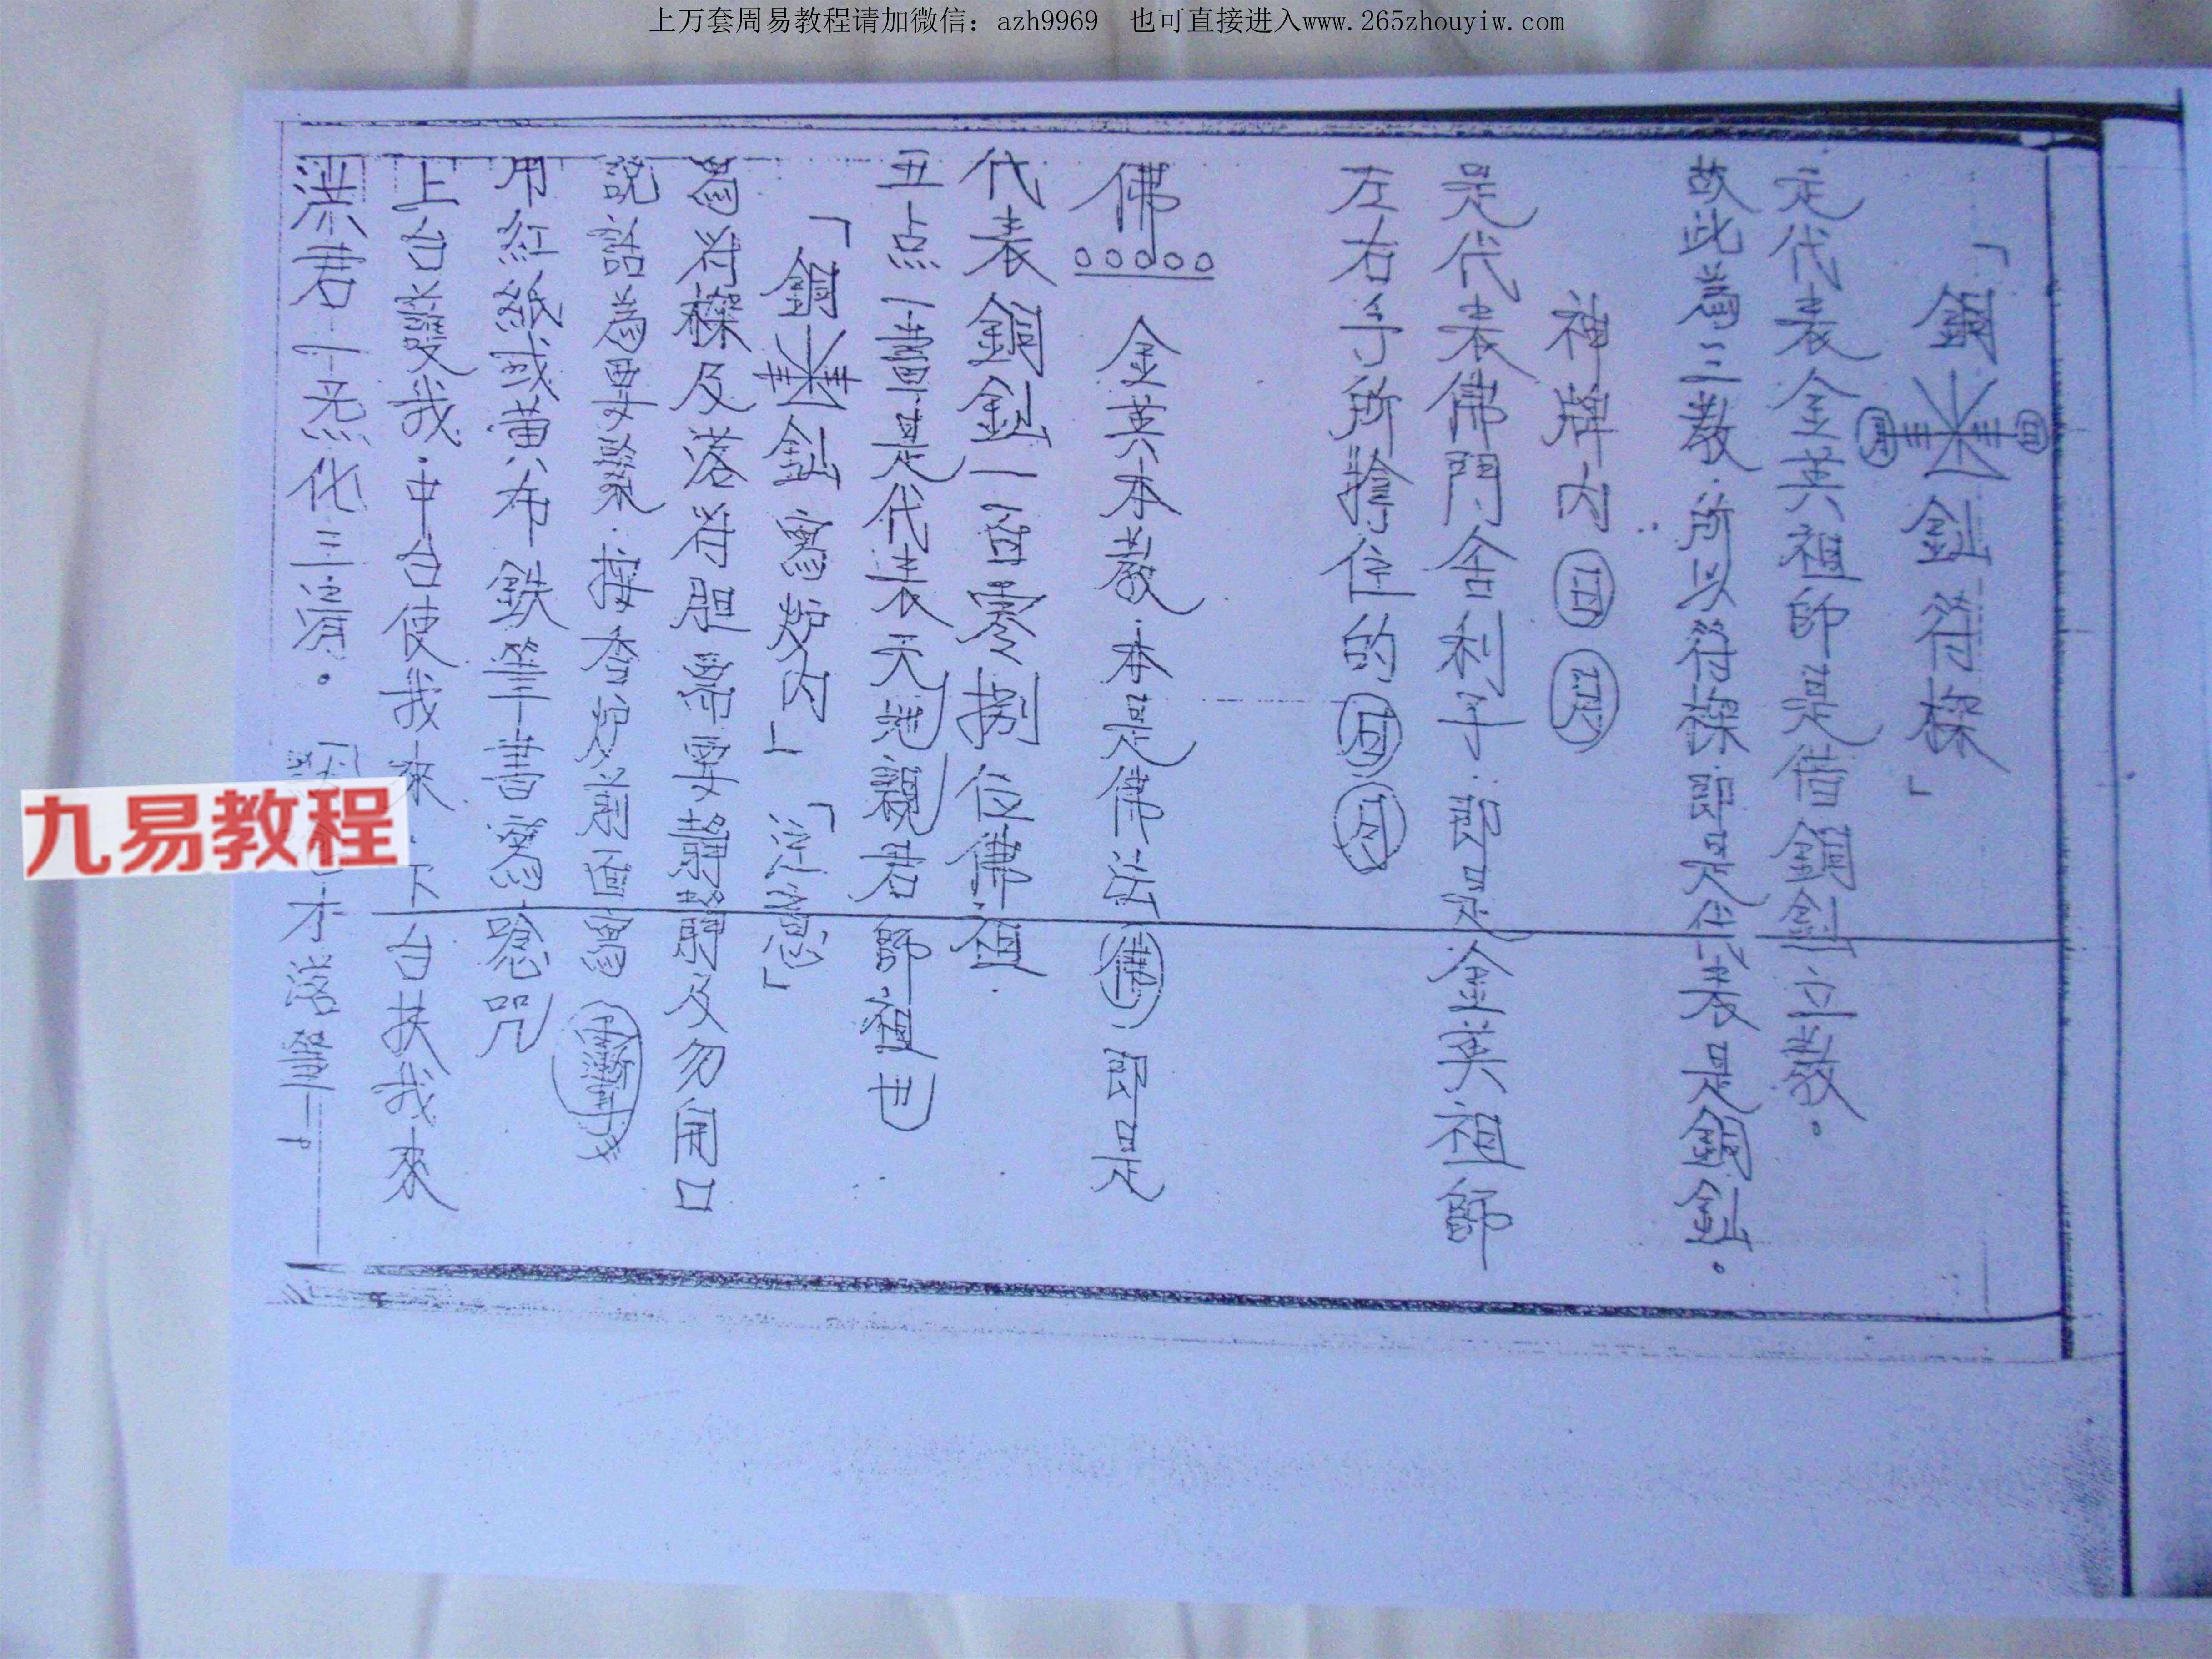 上万套周易教程请加微信：azh9969 也可直接进入www.265zhouyiw.com
「銅 鈄符樑」
日 月
定代表金英祖師是借銅鈄立教。
故此為三教.所以符樑即是代表是銅鈄。
神牌内 日 月
是代表佛門舍利子.即是金英祖師
左右手所擔住的 日 月
佛 金英本教.本是佛法 佛 即是
代表銅鈄一百零捌位佛祖.
五点一畫是代表天地親君師祖也
「銅 鈄 寫炉内」「注意」
寫符樑及落符胆需要 及勿開口
說話為要緊.按香炉前面寫
用紅紙或黄布鉄筆書寫唸咒
上台發我.中台使我來.下台扶我來
洪君一炁化三清。 才落筆。
九易教程